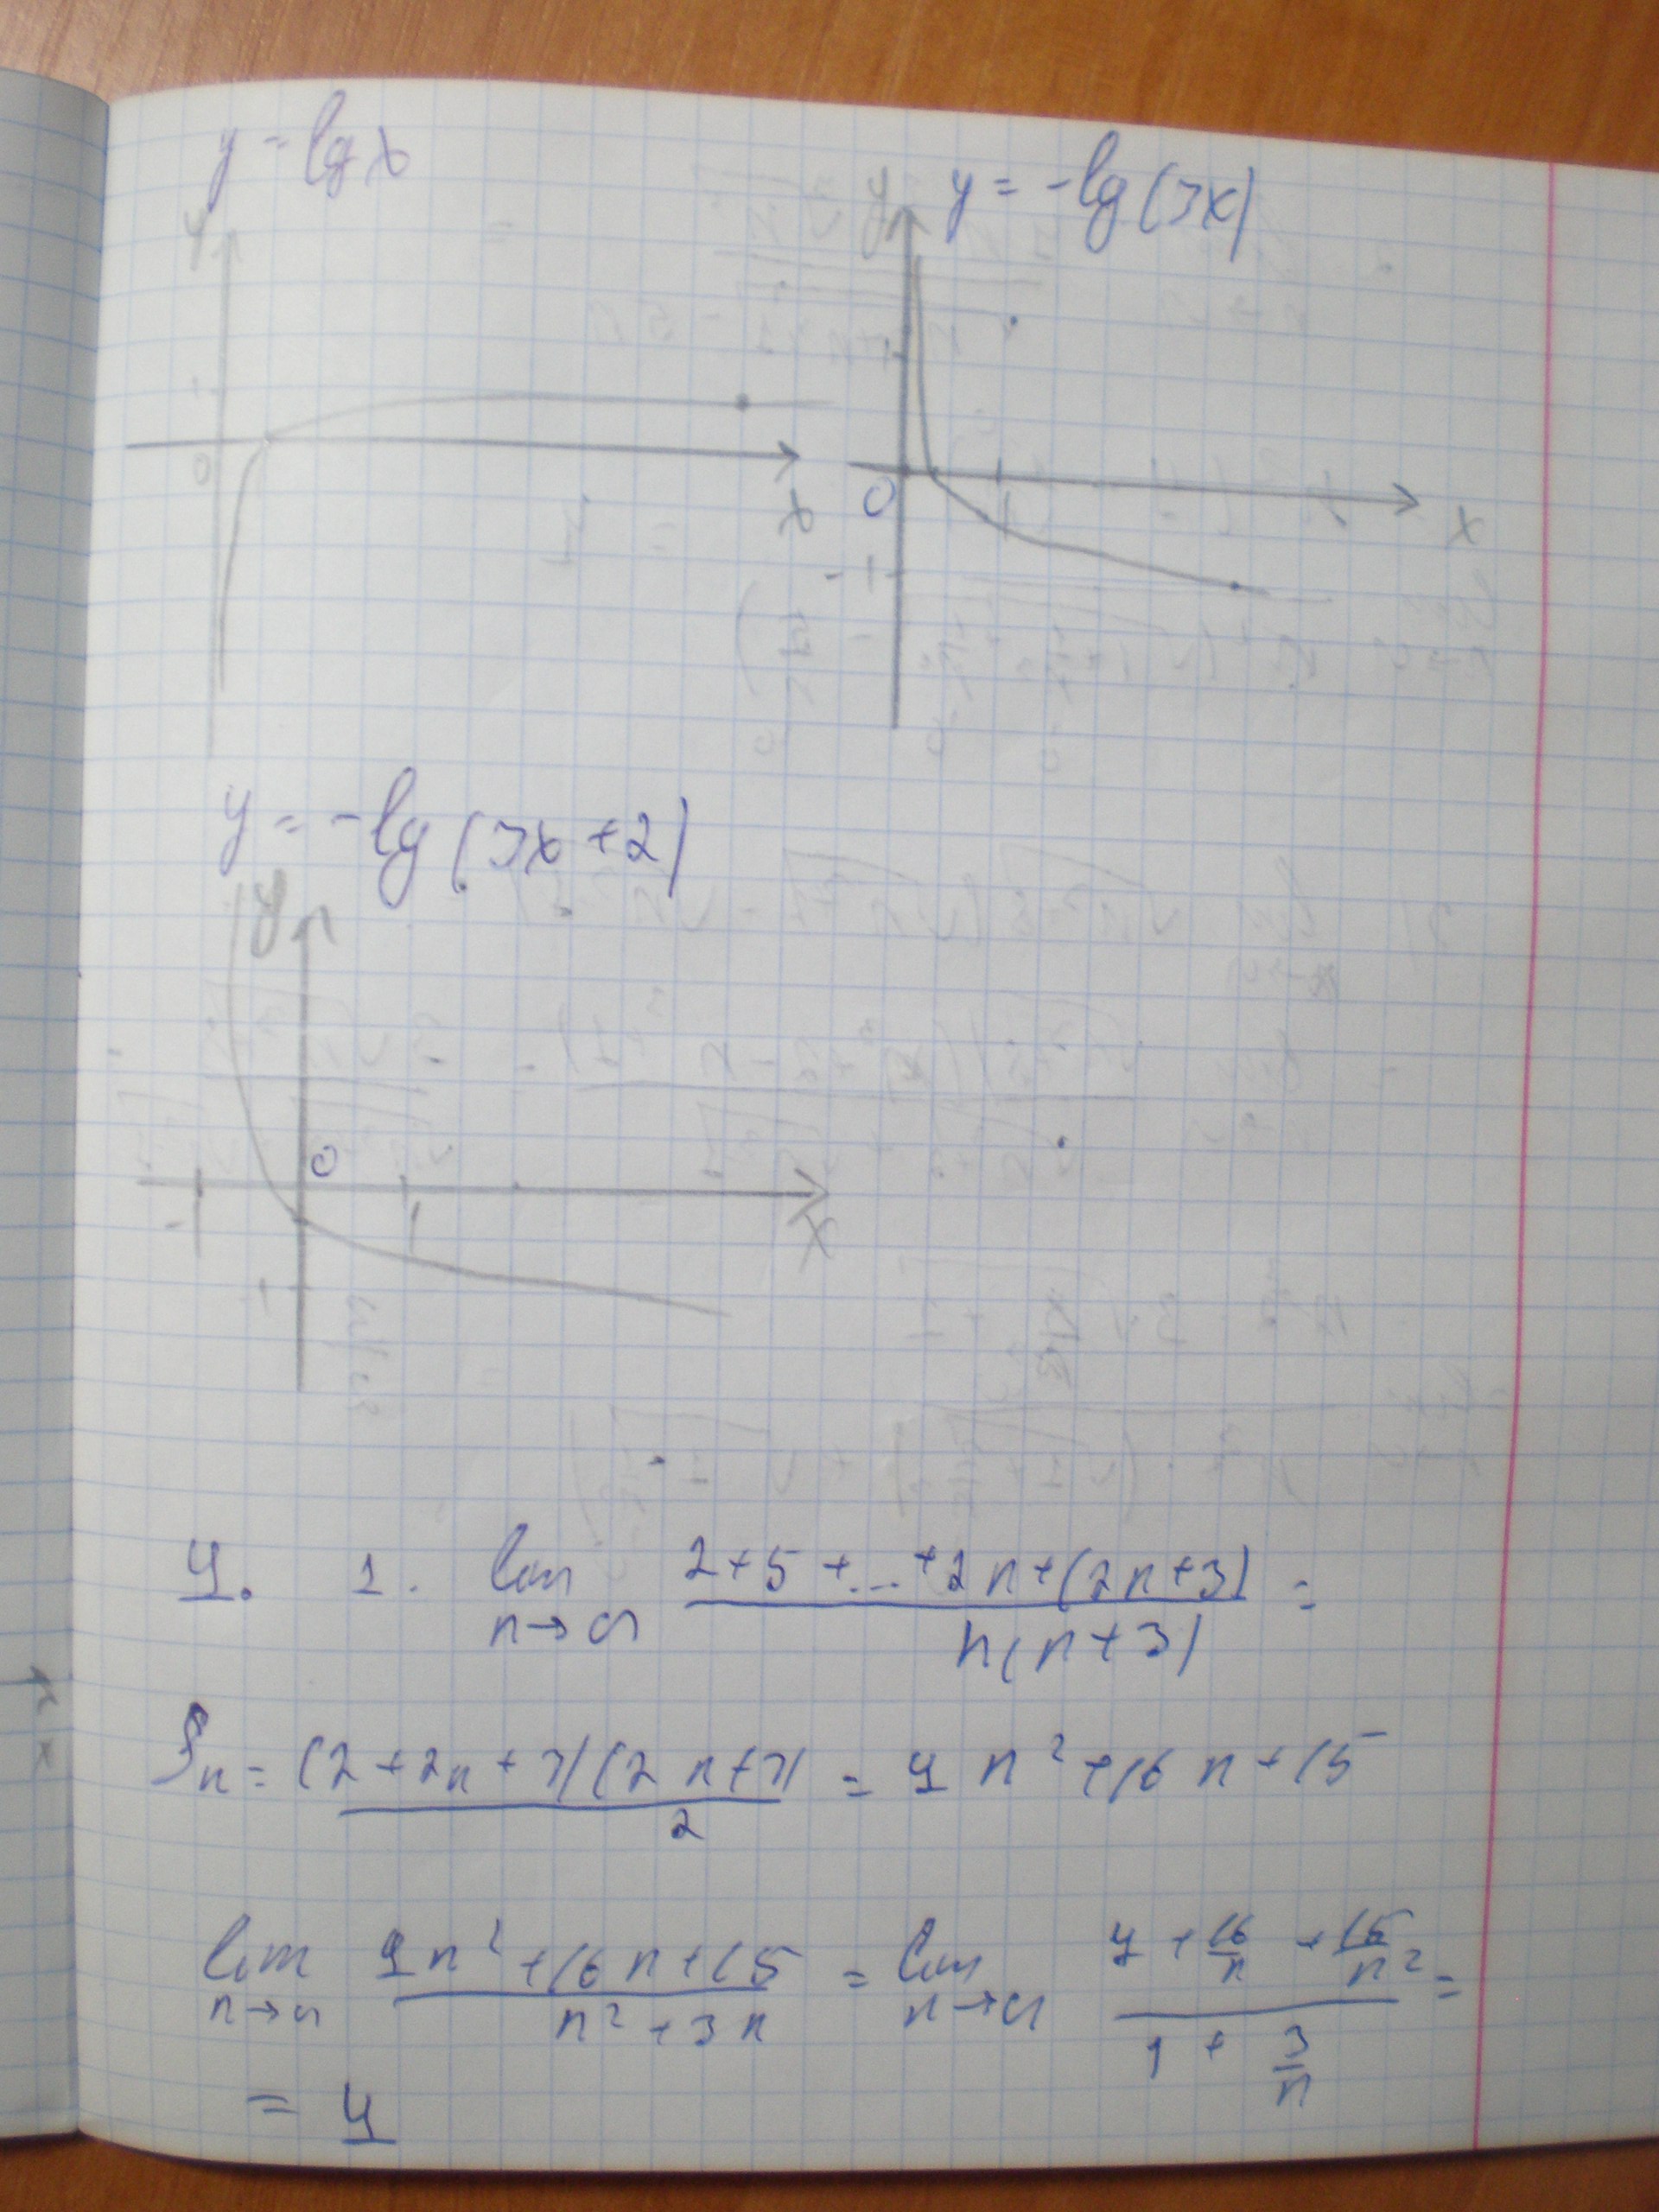 y = lg x
y = -lg(3x)
y
1
0
x
y
0
1
x
-1
y = -lg(3x+2)
y
0
-1
1
x
-1
4. 1. lim n→∞ (2+5+...+2n+(2n+3))/(n(n+3)) =
Sn = ((2+2n+3)(2n+3))/2 = 4n²+16n+15
lim n→∞ (4n²+16n+15)/(n²+3n) = lim n→∞ (4+16/n+15/n²)/(1+3/n) =
= 4